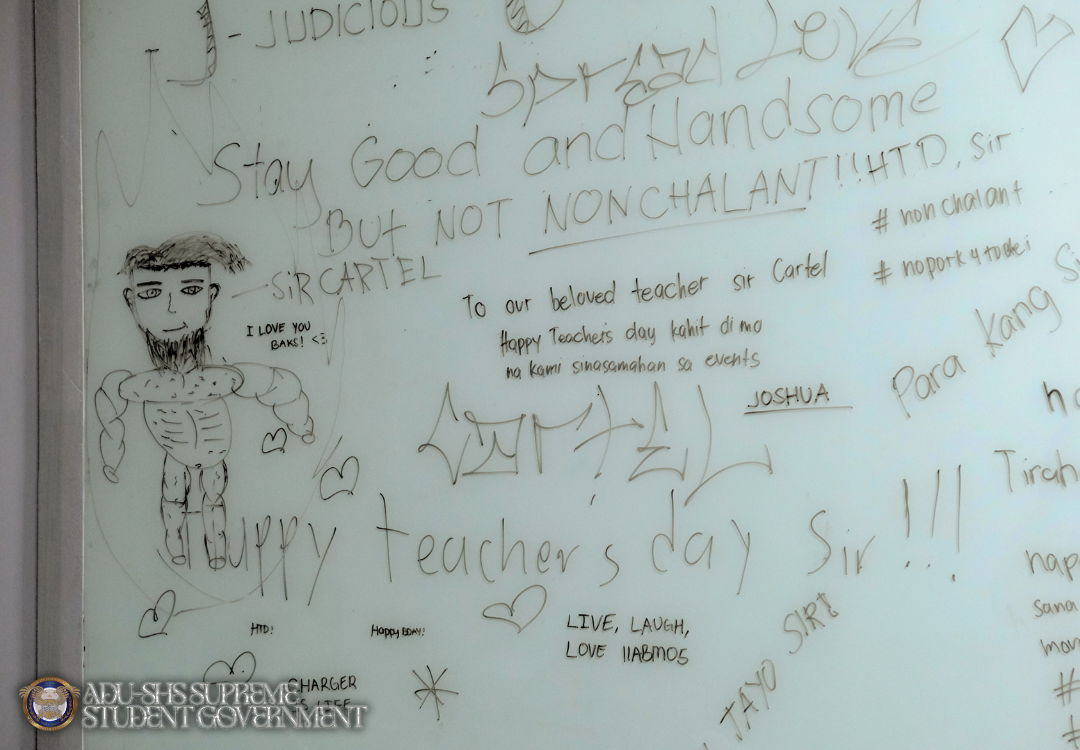 J - JUDICIOUS
Spread Love
Stay Good and Handsome
BUT NOT NONCHALANT!! HTD, Sir
# nonchalant
SIR CARTEL
I LOVE YOU
BAKS! <3
To our beloved teacher sir Cartel
Happy Teachers day kahit di mo
na kami sinasamahan sa events
JOSHUA
CarteL
Para kang Si
Tirah
Happy teacher's day Sir !!!
nap
sana
HTD!
Happy BDAY!
LIVE, LAUGH,
LOVE 11ABM05
TAYO SIR!
CHARGER
IS LIFE
ADU-SHS SUPREME
STUDENT GOVERNMENT